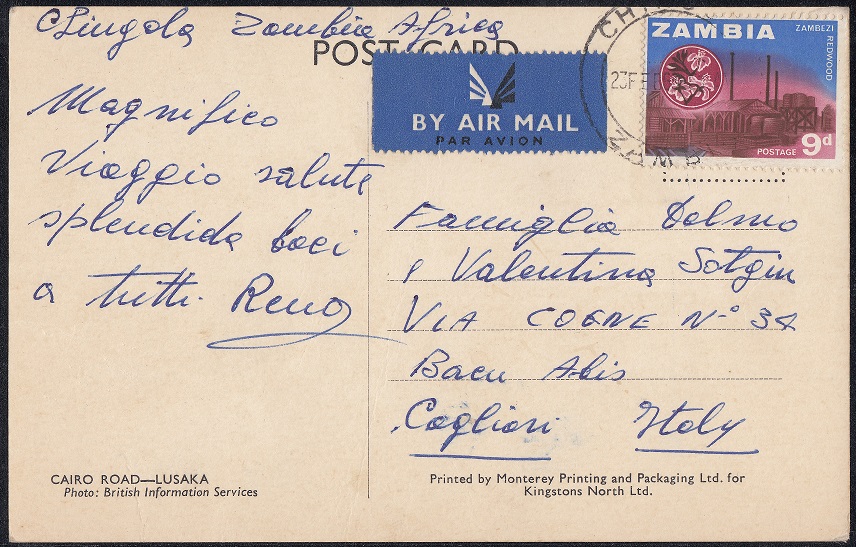 Chingola Zambia Africa
POST CARD
Magnifico
Viaggio salute
splendida baci
a tutti. Reno
BY AIR MAIL
PAR AVION
ZAMBIA
ZAMBEZI
REDWOOD
POSTAGE 9d
23 FE
Famiglia Delmo
e Valentina Sotgiu
VIA COGNE N° 34
Bacu Abis
Cagliari Italy
CAIRO ROAD—LUSAKA
Photo: British Information Services
Printed by Monterey Printing and Packaging Ltd. for
Kingstons North Ltd.